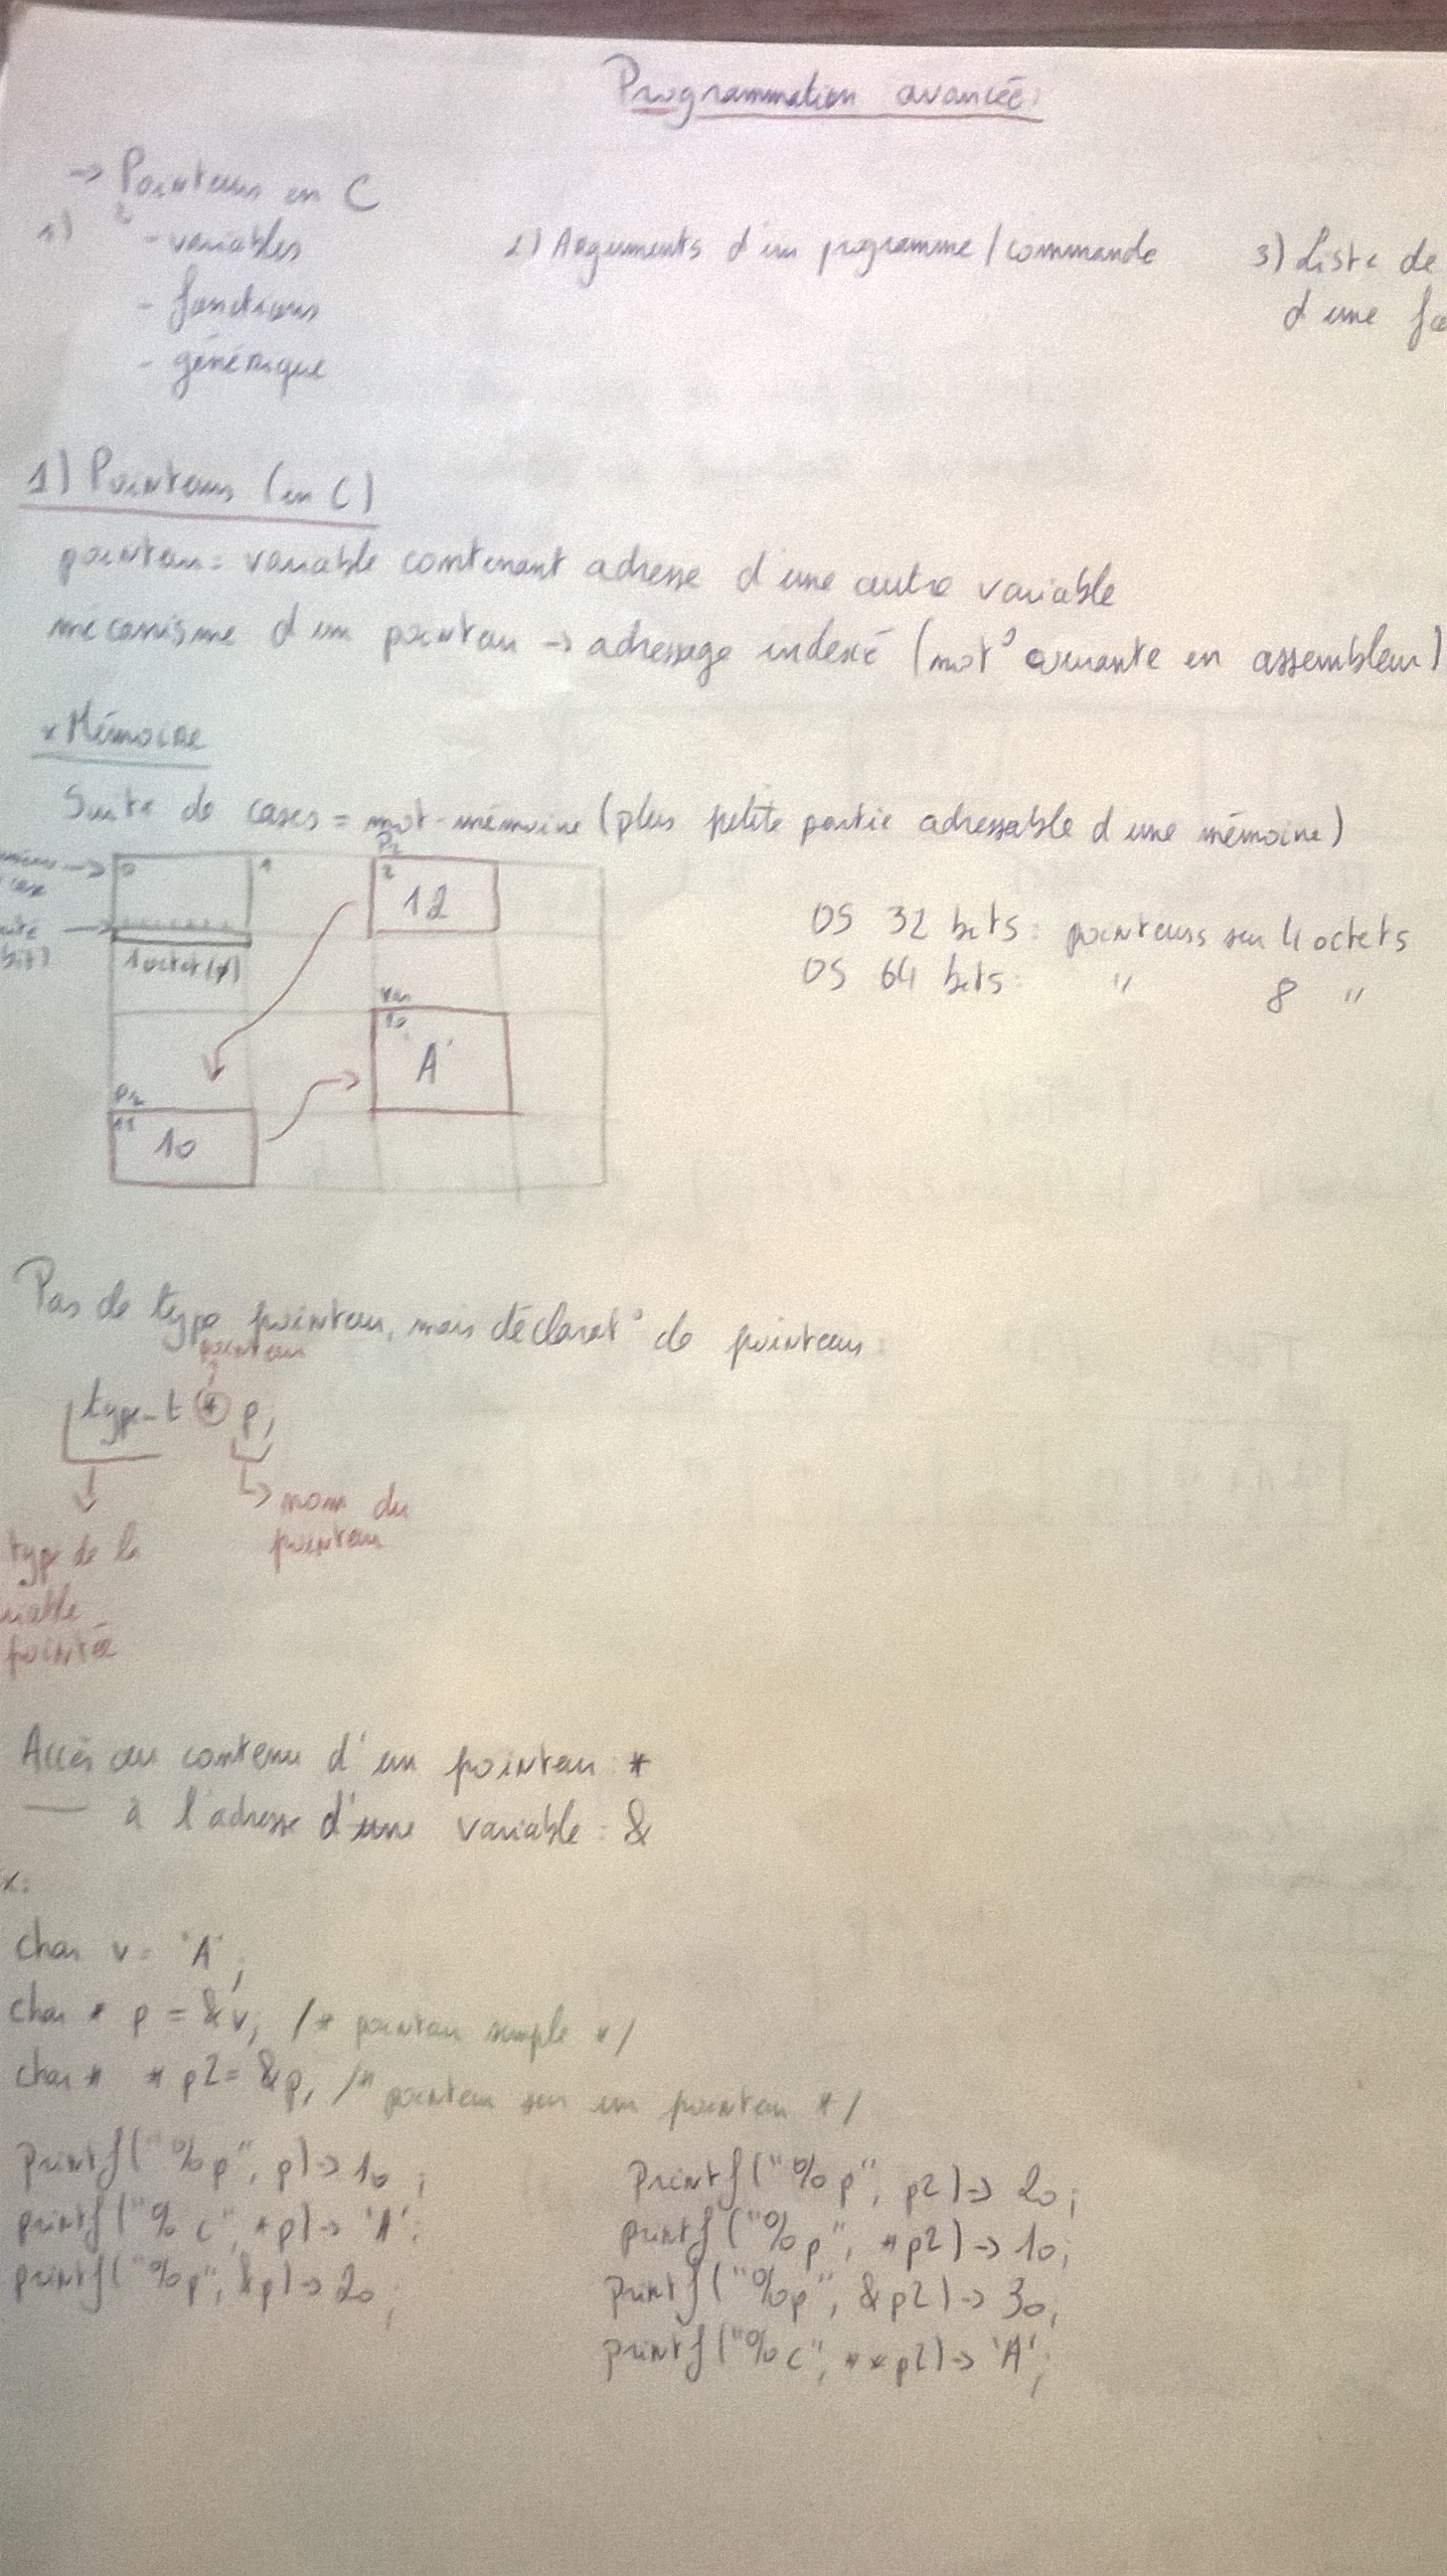 Programmation avancée:
-> Pointeurs en C
1) - variables
- fonctions
- générique
2) Arguments d'un programme / commande
3) Liste de
d'une fo
1) Pointeurs (en C)
pointeur = variable contenant adresse d'une autre variable
mécanisme d'un pointeur -> adressage indexé (mot° courante en assembleur)
* Mémoire
Suite de cases = mot-mémoire (plus petite partie adressable d'une mémoire)
case
0 1
1 octet
2
12
var
10
'A'
P2
10
OS 32 bits : pointeurs sur 4 octets
OS 64 bits : " 8 "
Pas de type pointeur, mais déclarat° de pointeurs :
pointeur
type_t * p;
nom du
pointeur
type de la
riable
pointée
Accès au contenu d'un pointeur : *
— à l'adresse d'une variable : &
x:
char v = 'A';
char * p = &v; /* pointeur simple */
char * * p2 = &p; /* pointeur sur un pointeur */
printf("%p", p) -> 10 ;
printf("%c", *p) -> 'A';
printf("%p", &p) -> 20 ;
printf("%p", p2) -> 20;
printf("%p", *p2) -> 10;
printf("%p", &p2) -> 30;
printf("%c", **p2) -> 'A';